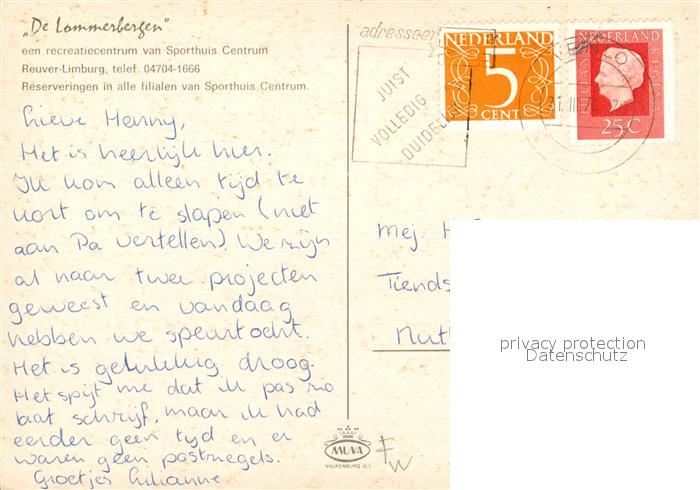 „De Lommerbergen"
een recreatiecentrum van Sporthuis Centrum
Reuver-Limburg, telef. 04704-1666
Reserveringen in alle filialen van Sporthuis Centrum.
Lieve Henny,
Het is heerlijk hier.
Ik kom alleen tijd te
kort om te slapen (niet
aan Pa vertellen) We zijn
al naar twee projecten
geweest en vandaag
hebben we speurtocht.
Het is gelukkig droog.
Het spijt me dat ik pas zo
laat schrijf, maar ik had
eerder geen tijd en er
waren geen postzegels.
Groetjes Lilianne
adresseer
JUIST
VOLLEDIG
DUIDELIJK
NEDERLAND
5
CENT
NEDERLAND
JULIANA REGINA
25 C
mej. H
Tiends
Nuth
privacy protection
Datenschutz
MUVA
VALKENBURG (L.)